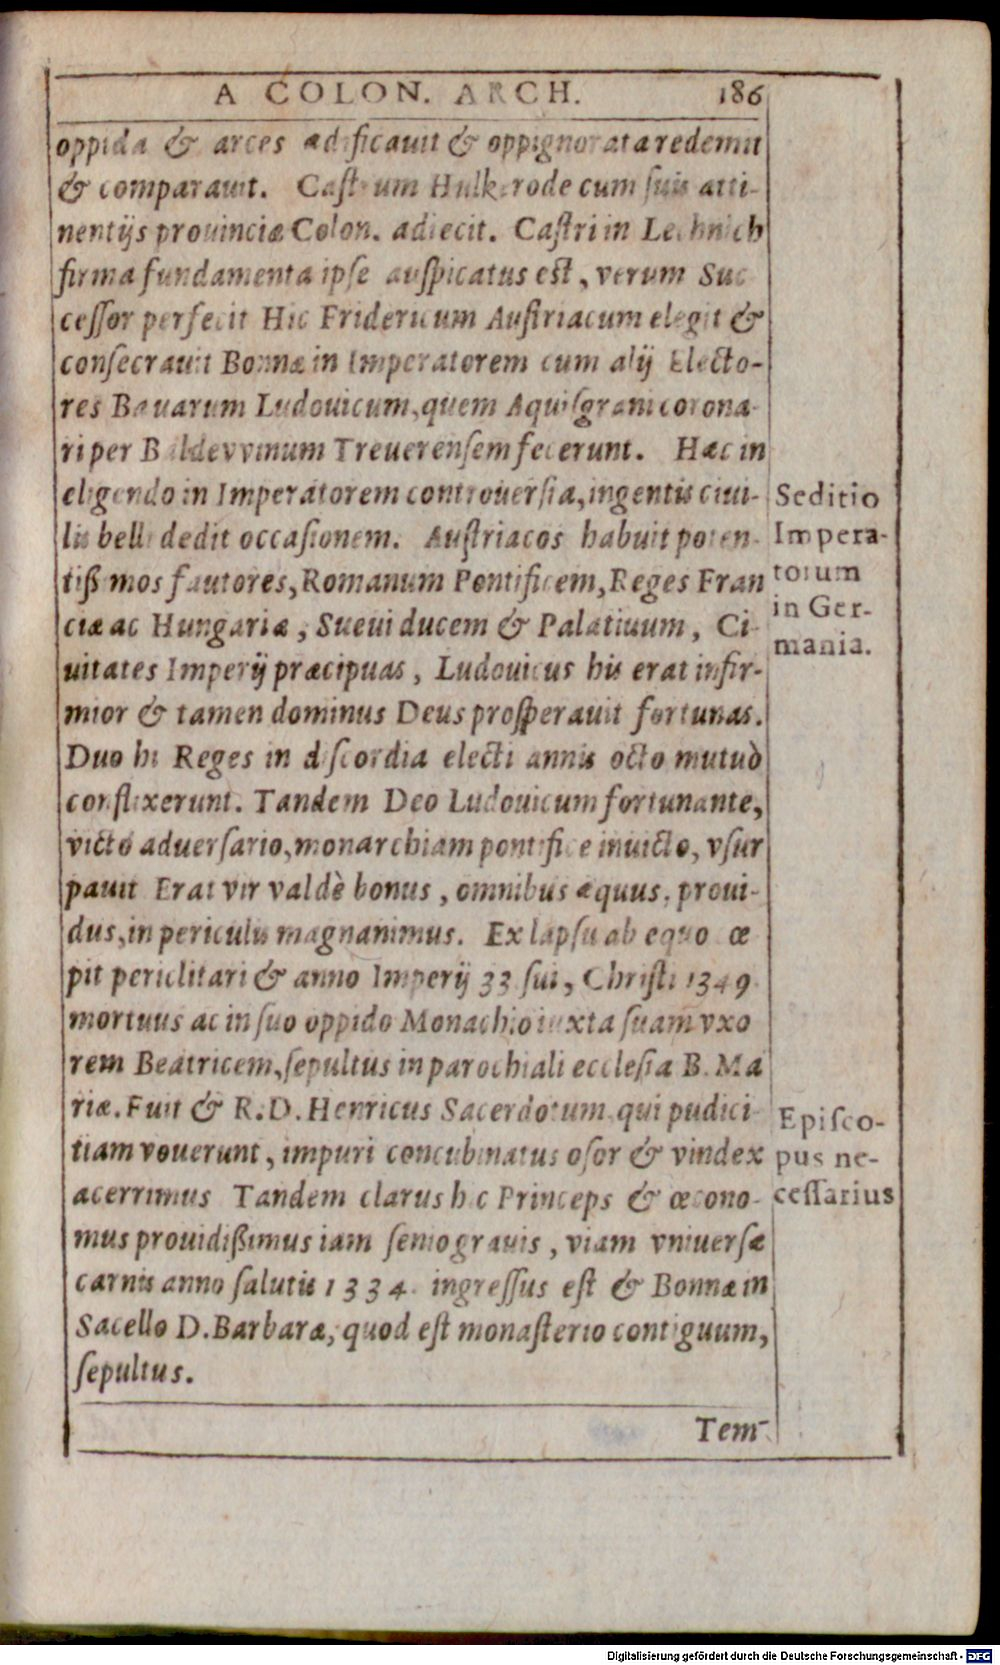 A COLON. ARCH. 186
oppida & arces ædificauit & oppignorata redemit
& comparauit. Castrum Hulkerode cum suis atti-
nentijs prouinciæ Colon. adiecit. Castri in Lechnich
firma fundamenta ipse auspicatus est, verum Suc
cessor perfecit Hic Fridericum Austriacum elegit &
consecrauit Bonnæ in Imperatorem cum alij Electo-
res Bauarum Ludouicum, quem Aquisgrani corona-
ri per Baldevvinum Treuerensem fecerunt. Hæc in
eligendo in Imperatorem controuersia, ingentis ciui-
lis belli dedit occasionem. Austriacos habuit poten-
tißimos fautores, Romanum Pontificem, Reges Fran
ciæ ac Hungariæ, Sueui ducem & Palatiuum, Ci-
uitates Imperij præcipuas, Ludouicus his erat infir-
mior & tamen dominus Deus prosperauit fortunas.
Duo hi Reges in discordia electi annis octo mutuò
conflixerunt. Tandem Deo Ludouicum fortunante,
victo aduersario, monarchiam pontifice inuicto, vsur
pauit Erat vir valdè bonus, omnibus æquus, proui-
dus, in periculis magnanimus. Ex lapsu ab equo cœ
pit periclitari & anno Imperij 33 sui, Christi 1349
mortuus ac in suo oppido Monachio iuxta suam vxo
rem Beatricem, sepultus in parochiali ecclesia B. Ma
riæ. Fuit & R. D. Henricus Sacerdotum qui pudici-
tiam vouerunt, impuri concubinatus osor & vindex
acerrimus Tandem clarus hic Princeps & œcono-
mus prouidißimus iam senio grauis, viam vniuersæ
carnis anno salutis 1334. ingressus est & Bonnæ in
Sacello D. Barbaræ, quod est monasterio contiguum,
sepultus.
Tem-
Seditio
Impera-
torum
in Ger-
mania.
Episco-
pus ne-
cessarius
Digitalisierung gefördert durch die Deutsche Forschungsgemeinschaft - DFG